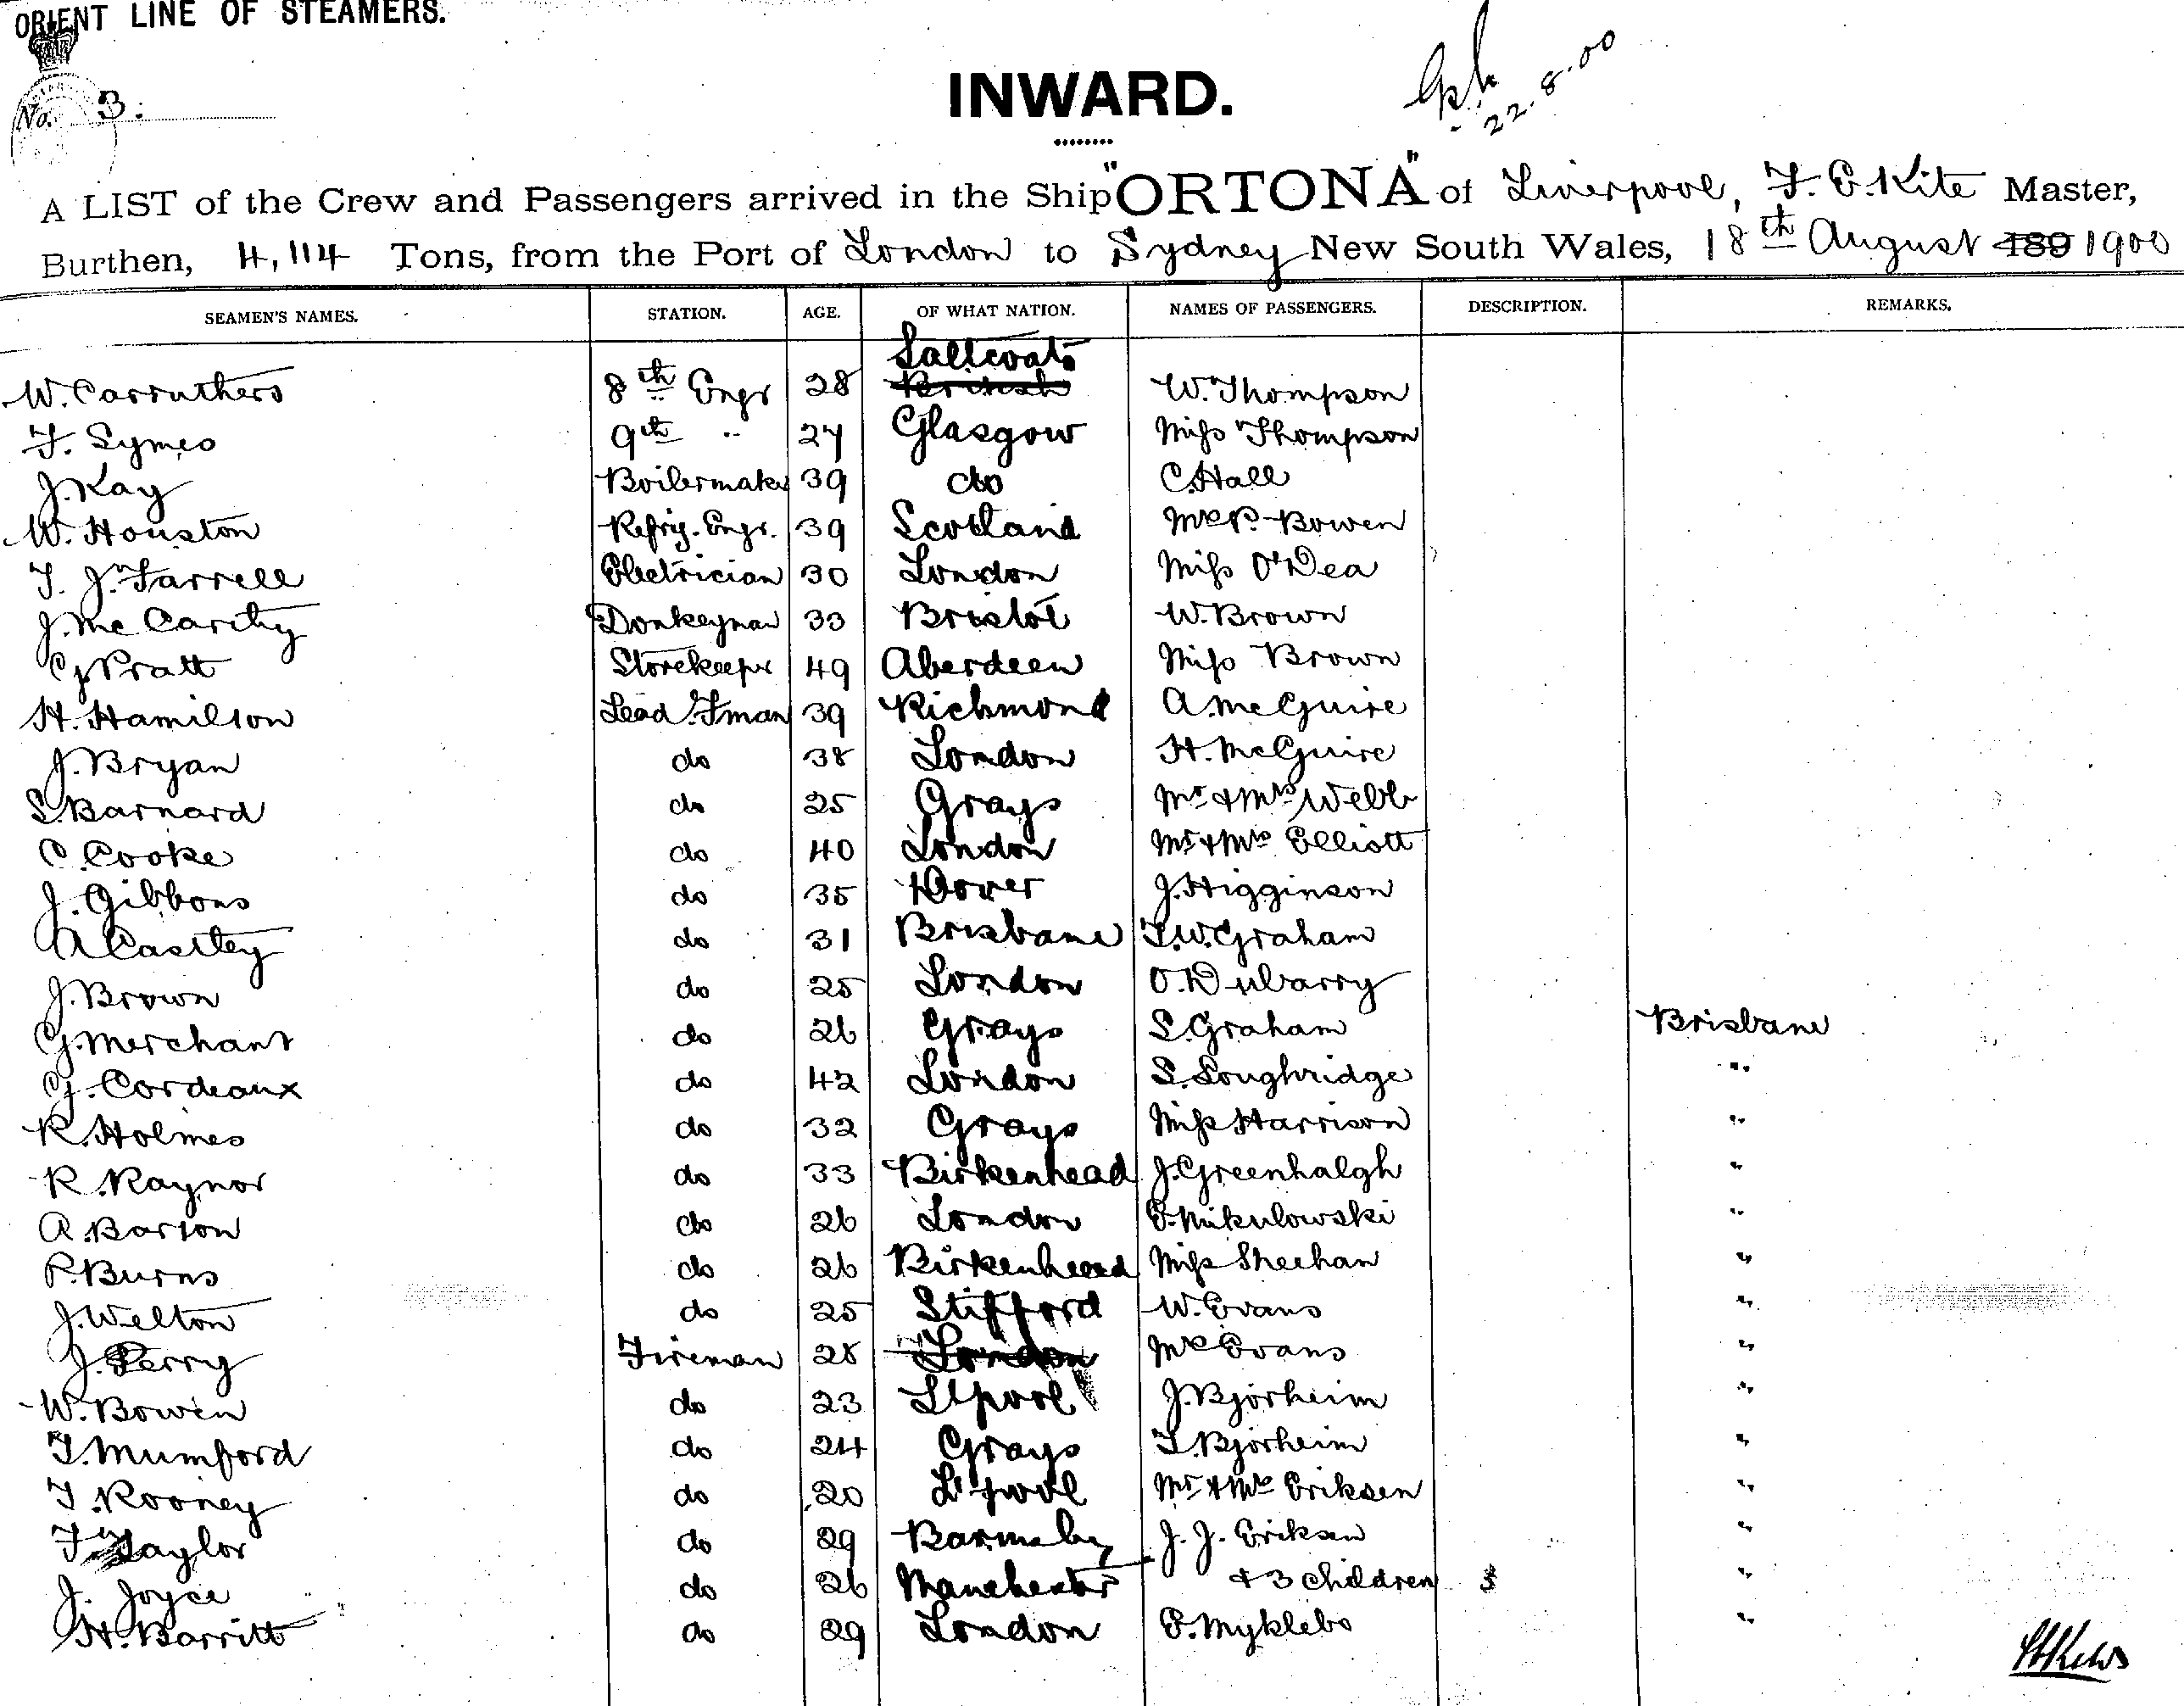 ORIENT LINE OF STEAMERS.
No. 3.
INWARD.
22.8.00
A LIST of the Crew and Passengers arrived in the Ship "ORTONA" of Liverpool, F. E. Kite Master,
Burthen, 4,114 Tons, from the Port of London to Sydney New South Wales, 18th August 189 1900
SEAMEN'S NAMES. STATION. AGE. OF WHAT NATION. NAMES OF PASSENGERS. DESCRIPTION. REMARKS.
W. Carruthers 8th Engr 28 Saltcoats British W. Thompson
F. Symes 9th " 27 Glasgow Miss Thompson
J. Kay Boilermaker 39 do C. Hall
W. Houston Refrig. Engr. 39 Scotland Mr P. Bowen
T. J. Farrell Electrician 30 London Miss O'Dea
J. Mc Carthy Donkeyman 33 Bristol W. Brown
G Pratt Storekeeper 49 Aberdeen Miss Brown
H. Hamilton Lead. Fman 39 Richmond A. McGuire
J. Bryan do 38 London H. McGuire
S. Barnard do 25 Grays Mr & Mrs Webb
C. Cooke do 40 London Mr & Mrs Elliott
J. Gibbons do 35 Dover J. Higginson
A Castley do 31 Brisbane T. W. Graham
J. Brown do 25 London O. Dubarry
G. Merchant do 26 Grays S. Graham Brisbane
G. Cordeaux do 42 London S. Loughridge "
R. Holmes do 32 Grays Miss Harrison "
R. Raynor do 33 Birkenhead J. Greenhalgh "
A. Barton do 26 London Mikulowski "
P. Burns do 26 Birkenhead Miss Sheehan "
J. Welton do 25 Stifford W. Evans "
J. Perry Fireman 28 London Mr Evans "
W. Bowen do 23 L'pool J. Bjorheim "
T. Mumford do 24 Grays T. Bjorheim "
T. Rooney do 20 L'pool Mr & Mrs Eriksen "
F. Taylor do 29 Barnsley J. J. Eriksen "
J. Joyce do 26 Manchester & 3 children "
H. Barritt do 29 London E. Myklebo "